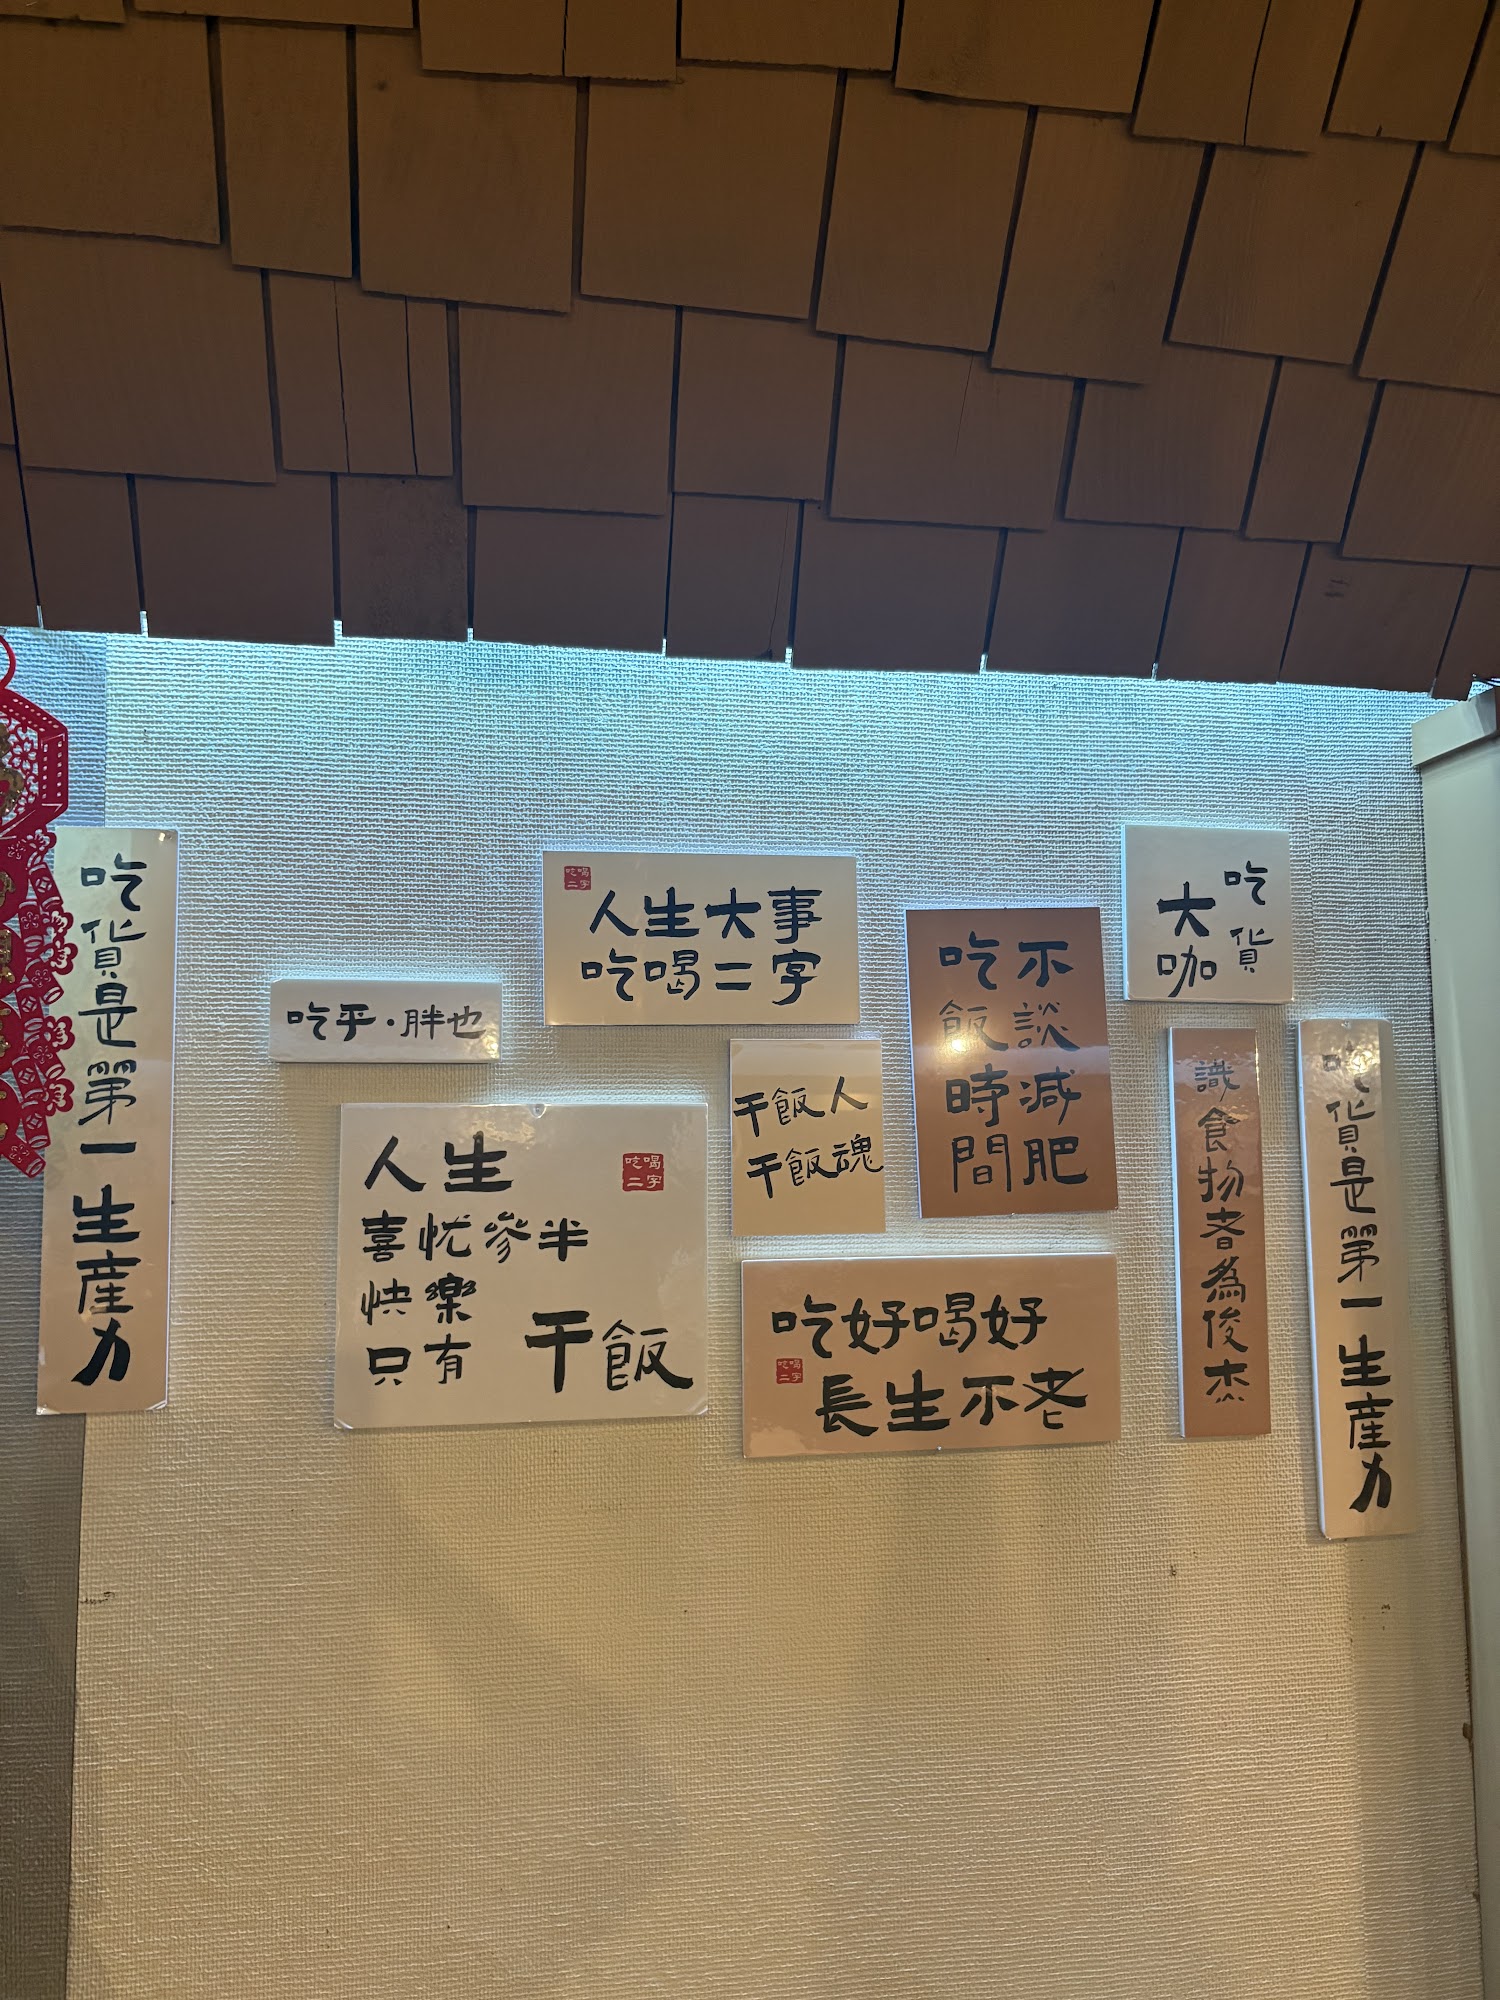 吃貨是第一生産力
吃乎·胖也
吃喝
二字
人生大事
吃喝二字
人生
吃喝
二字
喜忧參半
快樂
只有
干飯
干飯人
干飯魂
不談減肥
吃飯時間
吃好喝好
吃喝
二字
長生不老
吃貨
大咖
識食物者為俊杰
吃貨是第一生產力